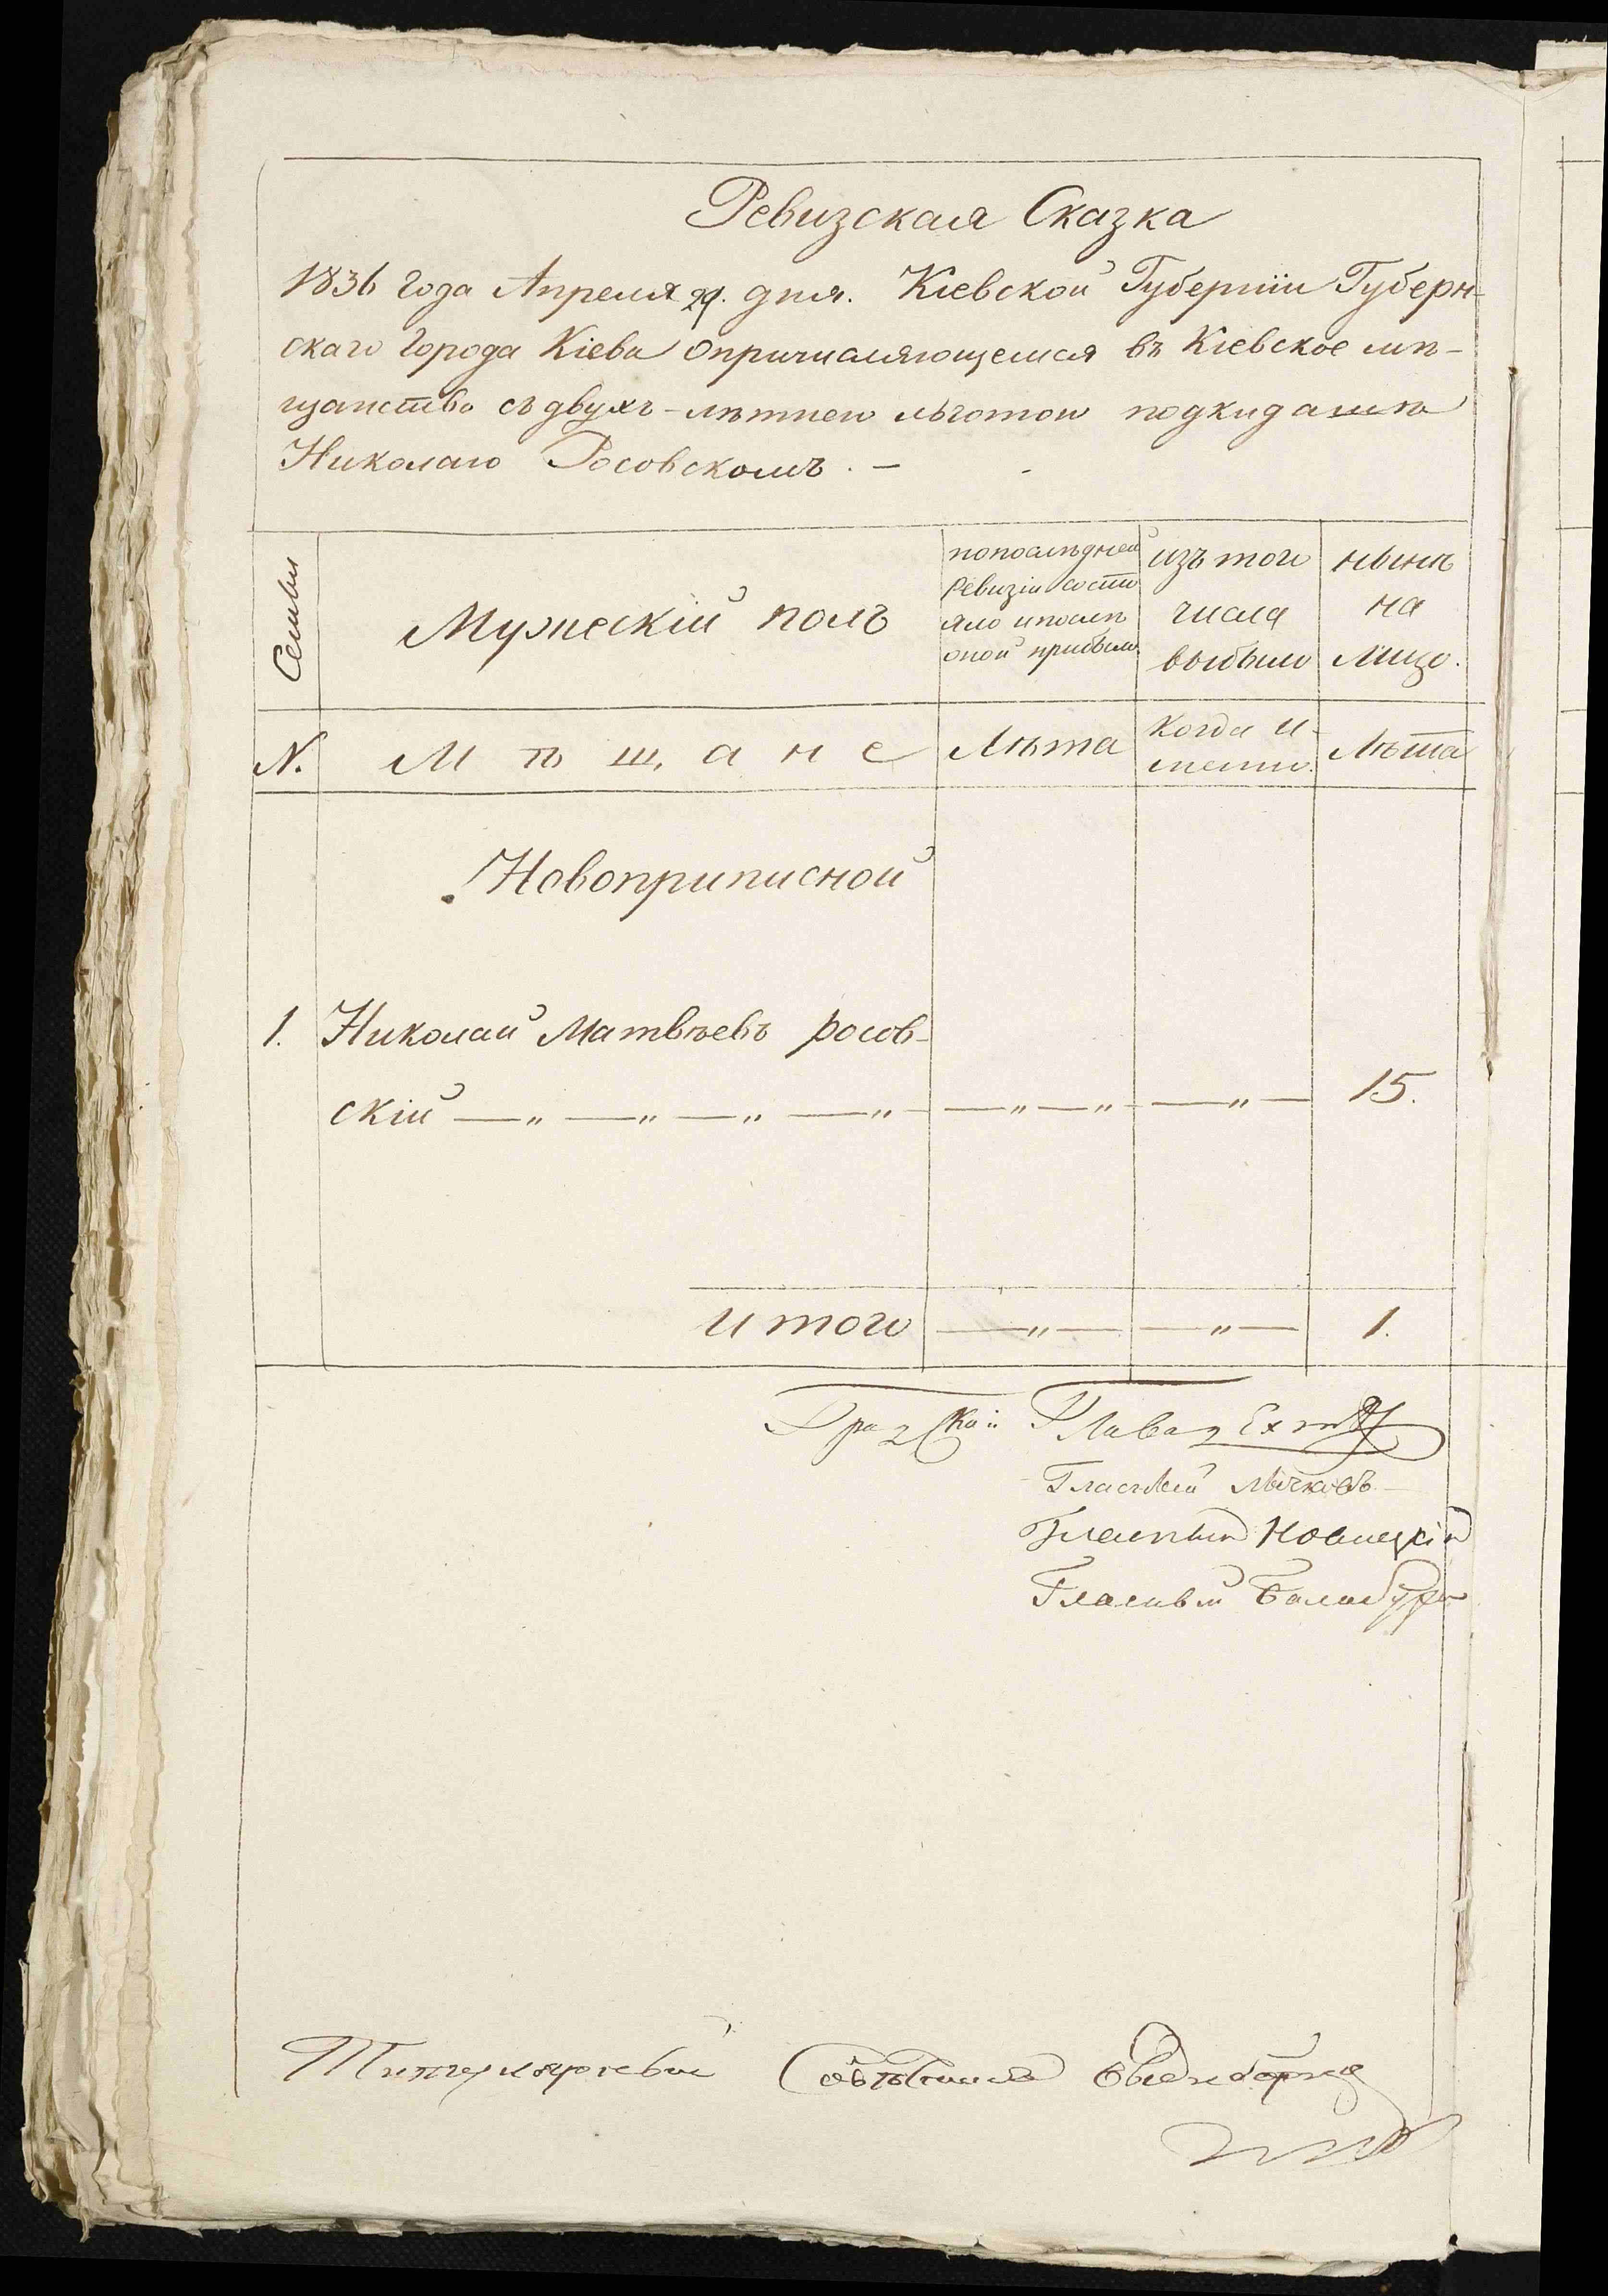 Ревизская Сказка
1836 года Апреля 29. дня. Кіевской Губерніи Губерн-
скаго города Кіева опричисляющемся въ Кіевское мѣ-
щанство съ двухъ-лѣтнею льготою подкидышѣ
Николаю Росовскомъ. -
Семьи
Мужескій полъ
попослѣдней Ревизіи состояло и послѣ оной прибыло
изъ того числа выбыло
нынѣ на лицо.
N.
Мѣщане
Лѣта
когда именно.
Лѣта
Новоприписной
1. Николай Матвѣевъ росов-
скій — „ — „ — „ — „ — „ — „ — „ — 15.
итого — „ — — „ — 1.
Градской Глава
Гласный Лычковъ
Гласный Новицкій
Гласный Балабуха